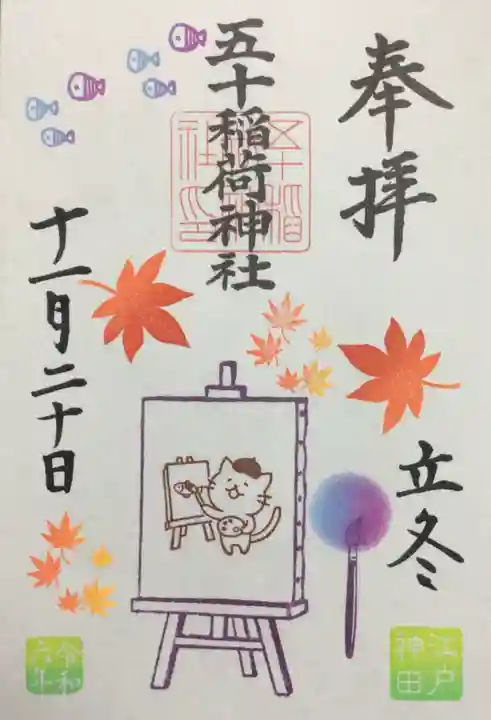 奉拝
立冬
江戸
神田
五十稲荷神社
十一月二十日
令和
六年